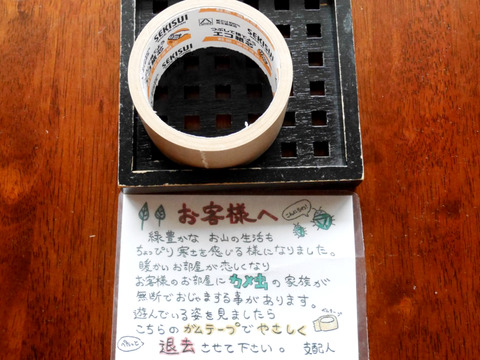 SEKISUI
SEKISUI
SEKISUI
お客様へ
緑豊かな お山の生活も
ちょっぴり寒さを感じる様になりました。
暖かいお部屋が恋しくなり
お客様のお部屋にカメ虫の家族が
無断でおじゃまする事があります。
遊んでいる姿を見ましたら
こちらのガムテープでやさしく
退去させて下さい。 支配人
ガムテープ